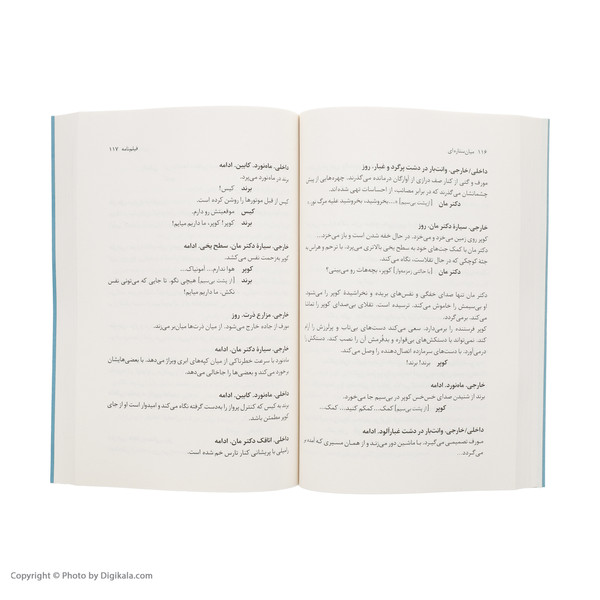 ۱۱۶ میان‌ستاره‌ای
داخلی/خارجی. وانت‌بار در دشت پرگرد و غبار. روز
مورف و گتی از کنار صف درازی از آوارگان درمانده می‌گذرند. چهره‌هایی از پیش
چشمانشان می‌گذرند که در برابر مصائب، از احساسات تهی شده‌اند.
دکتر مان [از پشت بی‌سیم] «...بخروشید، بخروشید علیه مرگ نور،»
خارجی. سیارهٔ دکتر مان. روز
کوپر روی زمین می‌خزد و می‌خزد. در حال خفه شدن است و باز می‌خزد...
دکتر مان با کمک جت‌های خود به سطح یخی بالاتری می‌پرد. با ترحم و هراس به
جثهٔ کوچکی که در حال تقلاست، نگاه می‌کند.
دکتر مان [با حالتی زمزمه‌وار] کوپر، بچه‌هات رو می‌بینی؟
دکتر مان تنها صدای خفگی و نفس‌های بریده و نخراشیدهٔ کوپر را می‌شنود
کوپر را خاموش می‌کند. ترسیده است. تقلای بی‌صدای کوپر را تماشا
می‌کند. برمی‌گردد.
کوپر فرستنده را برمی‌دارد. سعی می‌کند دست‌های بی‌تاب و پرلرزش را آرام
کند. نمی‌تواند با دستکش‌های بی‌قواره و بدفرمش آن را نصب کند. دستکش را
درمی‌آورد. با دست‌های سرمازده اتصال‌دهنده را وصل می‌کند.
کوپر برند! برند!
خارجی. ماه‌نورد. ادامه
برند از شنیدن صدای خس‌خس کوپر در بی‌سیم جا می‌خورد.
کوپر [از پشت بی‌سیم] کمک... کمکم کنید... کمک...
داخلی/خارجی. وانت‌بار در دشت غبارآلود. ادامه
مورف تصمیمی می‌گیرد. با ماشین دور می‌زند و از همان مسیری که آمده
می‌گردد...
فیلمنامه ۱۱۷
داخلی. ماه‌نورد. کابین. ادامه
برند در ماه‌نورد می‌پرد.
برند کیس!
کیس از قبل موتورها را روشن کرده است.
کیس موقعیتش رو دارم.
برند کوپر! کوپر، ما داریم میایم!
خارجی. سیارهٔ دکتر مان. سطح یخی. ادامه
کوپر به‌زحمت نفس می‌کشد.
کوپر هوا ندارم... آمونیاک...
برند [از پشت بی‌سیم] هیچی نگو. تا جایی که می‌تونی نفس
نکش، ما داریم میایم!
خارجی. مزارع ذرت. روز
مورف از جاده خارج می‌شود. از میان ذرت‌ها میان‌بر می‌زند.
خارجی. سیارهٔ دکتر مان. ادامه
ماه‌نورد با سرعت خطرناکی از میان کپه‌های ابری ویراژ می‌دهد. با بعضی‌هایشان
برخورد می‌کند و بعضی‌ها را جاخالی می‌دهد.
داخلی. ماه‌نورد. کابین. ادامه
برند به کیس که کنترل پرواز را به‌دست گرفته نگاه می‌کند و امیدوار است او از جای
کوپر مطمئن باشد.
داخلی. اتاقک دکتر مان. ادامه
رامیلی با پریشانی کنار تارس خم شده است.
Copyright © Photo by Digikala.com